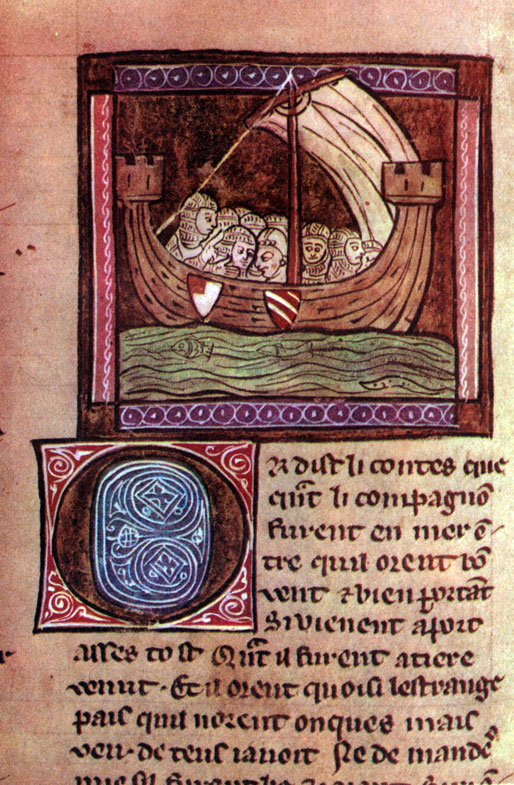 O
R dist li contes que
qūt li compagnō
furent en mer ē
tre quil orent bō
vent ⁊ bien portāt
Si vienent aport
asses tost Qūt il furent a tiere
venut · Et il orent quoisi lestrange
pais quil norent onques mais
veu · de teus i avoit Ne de mande